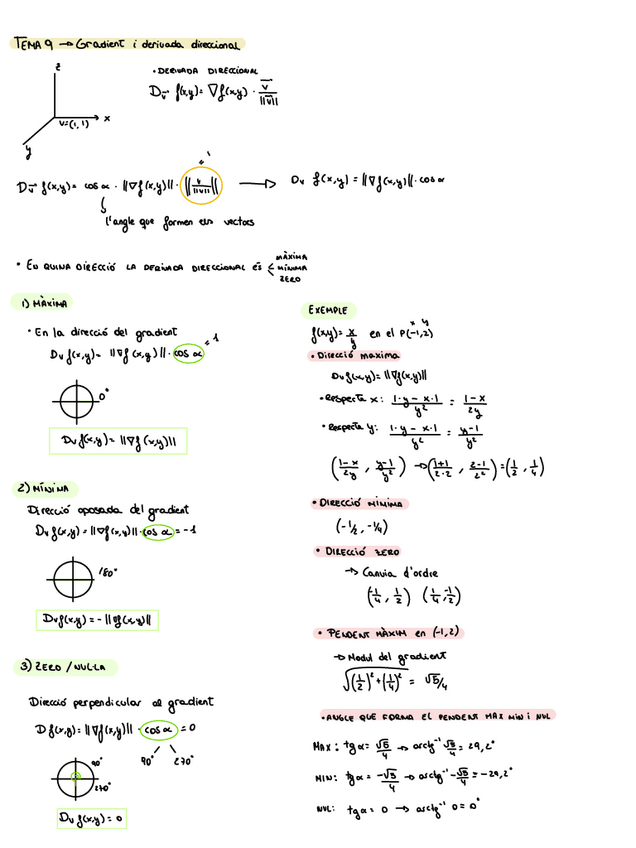 TEMA 9 → Gradient i derivada direccional
z
x
y
v=(1,1)
• DERIVADA DIRECCIONAL
D_v→ f(x,y) = ∇f(x,y) · v→/||v→||
= 1
D_v→ f(x,y) = cos α · ||∇f(x,y)|| · ||v/||v|| || → D_v f(x,y) = ||∇f(x,y)|| · cos α
l'angle que formen els vectors
• EN QUINA DIRECCIÓ LA DERIVADA DIRECCIONAL ÉS < MÀXIMA
MÍNIMA
ZERO
1) MÀXIMA
• En la direcció del gradient
D_v f(x,y) = ||∇f(x,y)|| · cos α = 1
0°
D_v f(x,y) = ||∇f(x,y)||
2) MÍNIMA
Direcció oposada del gradient
D_v f(x,y) = ||∇f(x,y)|| · cos α = -1
180°
D_v f(x,y) = - ||∇f(x,y)||
3) ZERO / NUL·LA
Direcció perpendicular al gradient
D f(x,y) = ||∇f(x,y)|| · cos α = 0
90° 270°
90°
270°
D_v f(x,y) = 0
EXEMPLE
x y
f(x,y) = x/y en el P(-1,2)
• Direcció maxima
D_v f(x,y) = ||∇f(x,y)||
• Respecte x: (1·y - x·1)/y² = (1-x)/2y
• Respecte y: (1·y - x·1)/y² = (y-1)/y²
((1-x)/2y , (y-1)/y²) → ((1+1)/2·2 , (2-1)/2²) = (1/2 , 1/4)
• DIRECCIÓ MÍNIMA
(-1/2, -1/4)
• DIRECCIÓ ZERO
→ Canvia d'ordre
(-1/4 , 1/2) (1/4 , -1/2)
• PENDENT MÀXIM en (-1,2)
→ Modul del gradient
√((1/2)² + (1/4)²) = √5/4
• ANGLE QUE FORMA EL PENDENT MAX MIN I NUL
MAX: tg α = √5/4 → arctg⁻¹ √5/4 = 29,2°
MIN: tg α = -√5/4 → arctg⁻¹ -√5/4 = -29,2°
NUL: tg α = 0 → arctg⁻¹ 0 = 0°